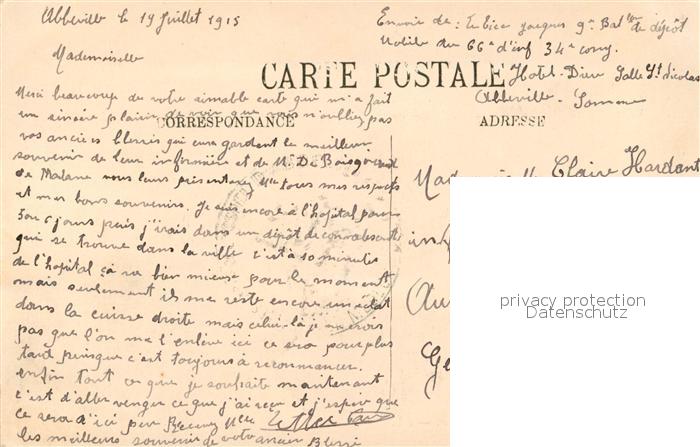 Abbeville le 19 Juillet 1915
Mademoiselle
Merci beaucoup de votre aimable carte qui m'a fait
un sincère plaisir de voir que vous n'oubliez pas
vos anciens blessés qui eux gardent le meilleur
souvenir de leur infirmière et de
de vous leurs présenterez tous mes respects
et mes bons souvenirs. Je suis encore à l'hopital pour
5 ou 6 jours puis j'irais dans un dépôt de
qui se trouve dans la ville c'est à 10 minutes
de l'hopital sa va bien mieux pour le moment
mais seulement il me reste encore un éclat
dans la cuisse droite mais celui-là je ne crois
pas que l'on me l'enlève ici ce sera pour plus
tard puisque c'est toujours à recommencer.
enfin tout ce que je souhaite maintenant
c'est d'aller venger ce que j'ai reçu et j'espère que
ce sera d'ici peu Recevez Mlle
les meilleurs souvenir de votre ancien Blessé
Envoi de: jacques 9e Batllon de dépôt
du 66e d'inf 34e comp.
CARTE POSTALE
Hotel-Dieu Salle St Nicolas
Abbeville - Somme
CORRESPONDANCE
ADRESSE
Claire Hardant
inf
Au
Ge
privacy protection
Datenschutz